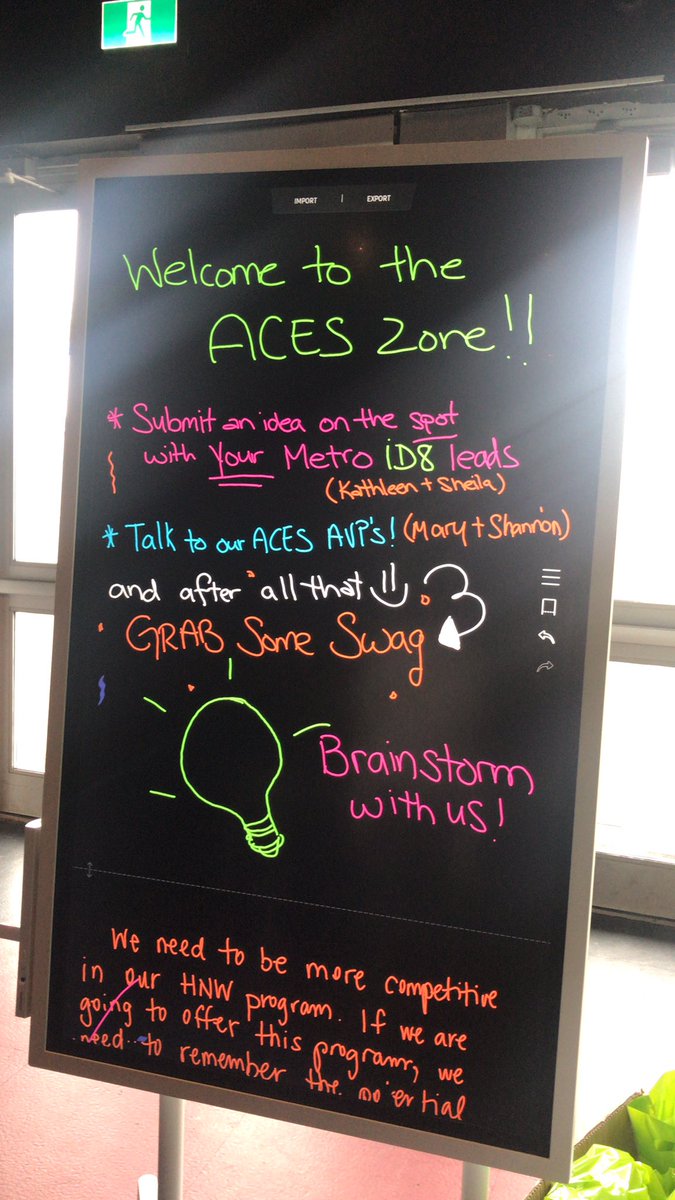 IMPORT | EXPORT
Welcome to the
ACES Zone!!
* Submit an idea on the spot
with Your Metro iD8 leads
(Kathleen + Sheila)
* Talk to our ACES AVP's! (Mary + Shannon)
and after all that
GRAB Some Swag
Brainstorm
with us!
We need to be more competitive
in our HNW program. If we are
going to offer this program, we
need to remember the